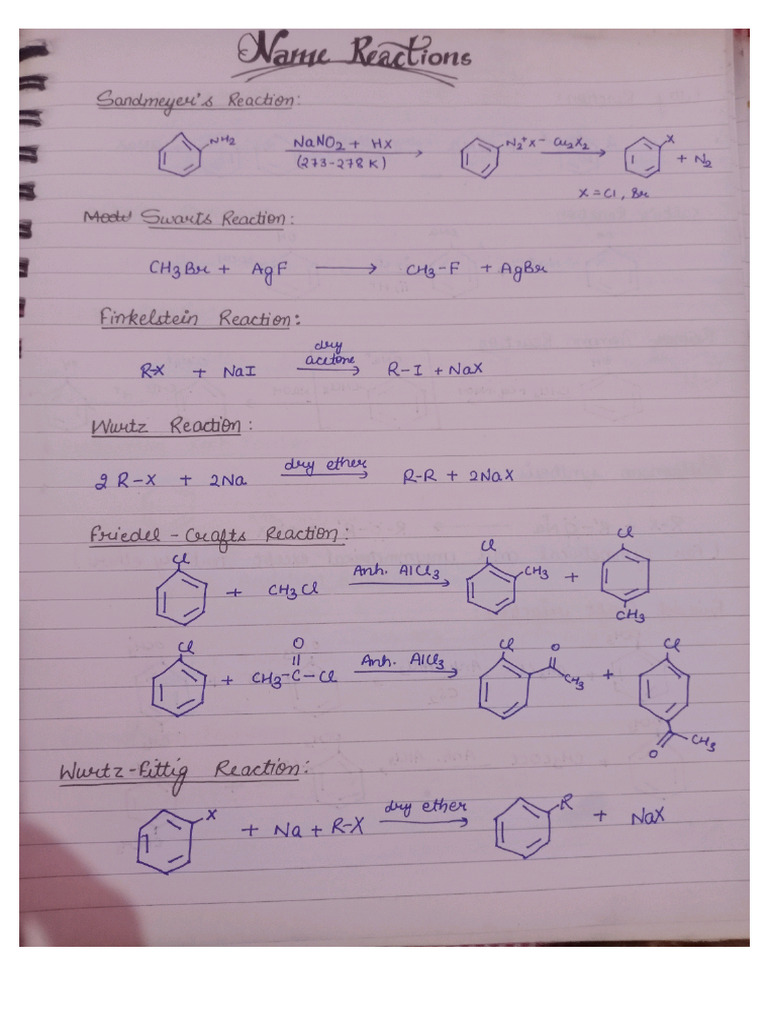 Name Reactions
Sandmeyer's Reaction:
NH2 NaNO2 + HX (273-278K) N2+X- Cu2X2 X + N2
X = Cl, Br
Swarts Reaction:
CH3Br + AgF CH3-F + AgBr
Finkelstein Reaction:
R-X + NaI dry acetone R-I + NaX
Wurtz Reaction:
2 R-X + 2Na dry ether R-R + 2NaX
Friedel-Crafts Reaction:
Cl + CH3Cl Anh. AlCl3 Cl CH3 + Cl CH3
Cl + CH3-C-Cl O Anh. AlCl3 Cl O CH3 + Cl O CH3
Wurtz-Fittig Reaction:
X + Na + R-X dry ether R + NaX